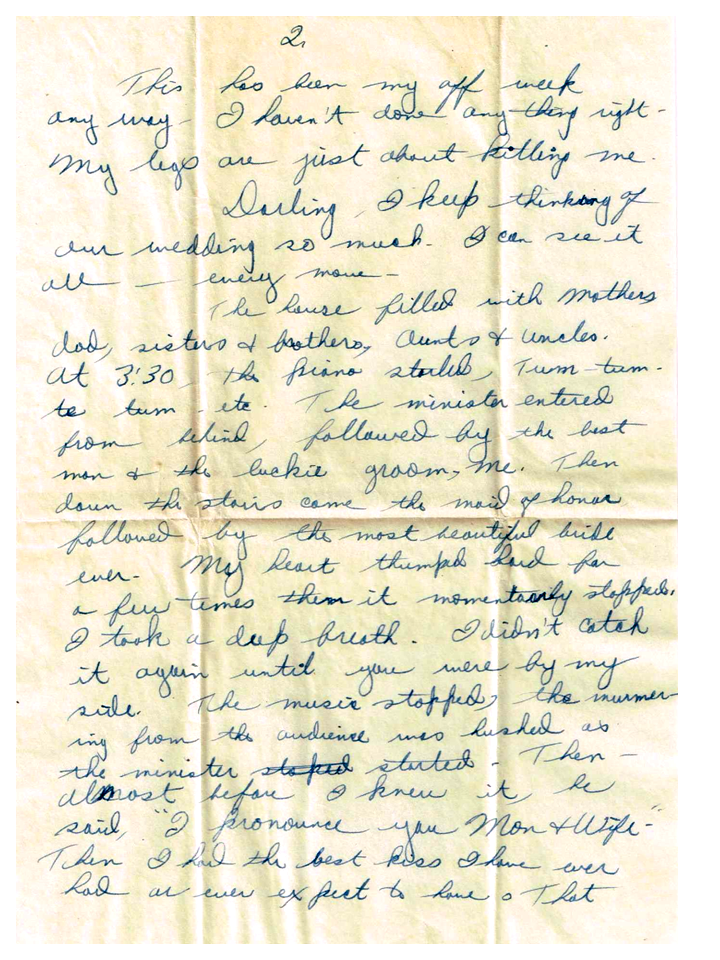 2.
This has been my off week
any way - I haven't done any thing right -
My legs are just about killing me.
Darling, I keep thinking of
our wedding so much. I can see it
all — every move -
The house filled with Mothers
dad, sisters & brothers, Aunts & Uncles.
At 3:30 the piano started, Tum-tum-
te tum - etc. The minister entered
from behind, followed by the best
man & the luckie groom, me. Then
down the stairs came the maid of honor
followed by the most beautiful bride
ever. My heart thumped hard for
a few times then it momentarily stopped.
I took a deep breath. I didn't catch
it again until you were by my
side. The music stopped, the murmer-
ing from the audience was hushed as
the minister stoped started - Then -
almost before I knew it, he
said, "I pronounce you Man & Wife-"
Then I had the best kiss I have ever
had or ever expect to have. That